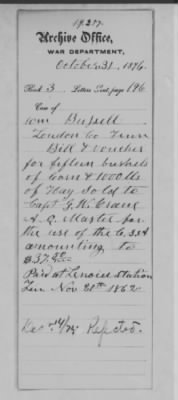 Archive Office,
WAR DEPARTMENT,
October 31, 1876.
Book 3 Letters Sent, page 196
Case of
Wm Bussell
Loudon Co Tenn
Bill & voucher
for fifteen bushels
of Corn & 1000 lbs
of Hay Sold to
Capt J. H. Crane
A. Q. Master for
the use of the C.S.A
amounting to
$37.50
Paid at Lenoirs Station
Ten Nov 20th 1862
Dec 14/75